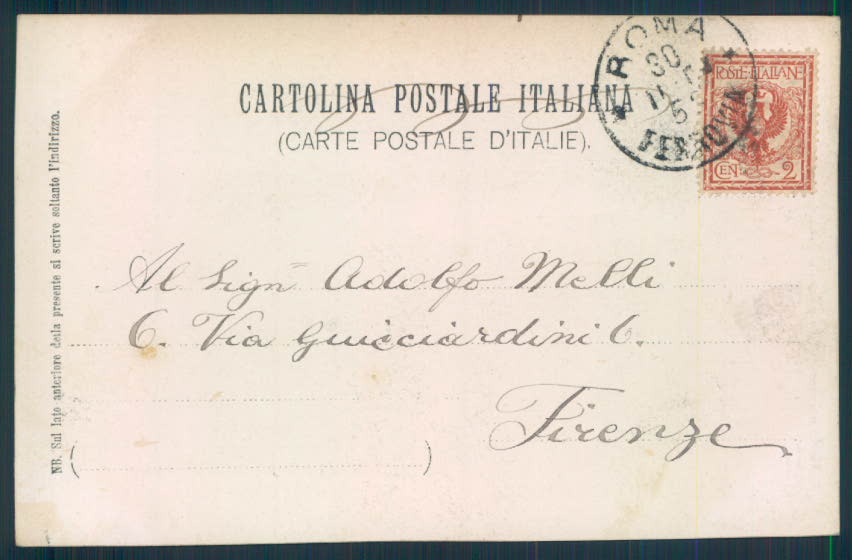 CARTOLINA POSTALE ITALIANA
(CARTE POSTALE D'ITALIE).
ROMA
30
11
FERROVIA
POSTE·ITALIANE
CEN 2
Al Sign Adolfo Melli
6. Via Guicciardini 6.
Firenze
NB. Sul lato anteriore della presente si scrive soltanto l'indirizzo.